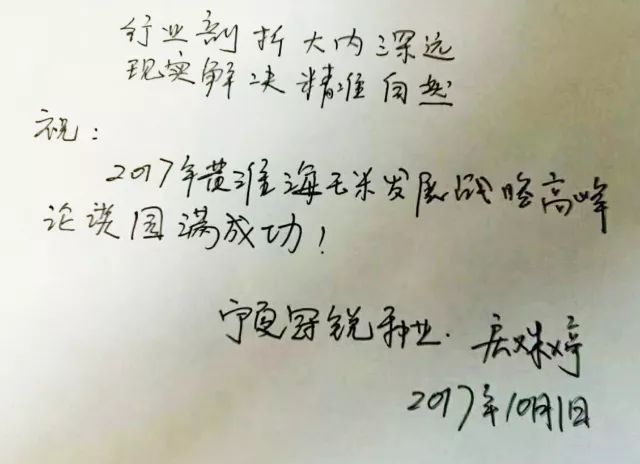 行业剖折大内深远
现实解决精准自然
祝：
2017年黄淮海玉米发展战略高峰
论谈圆满成功！
宁夏冠锐种业.
2017年10月1日